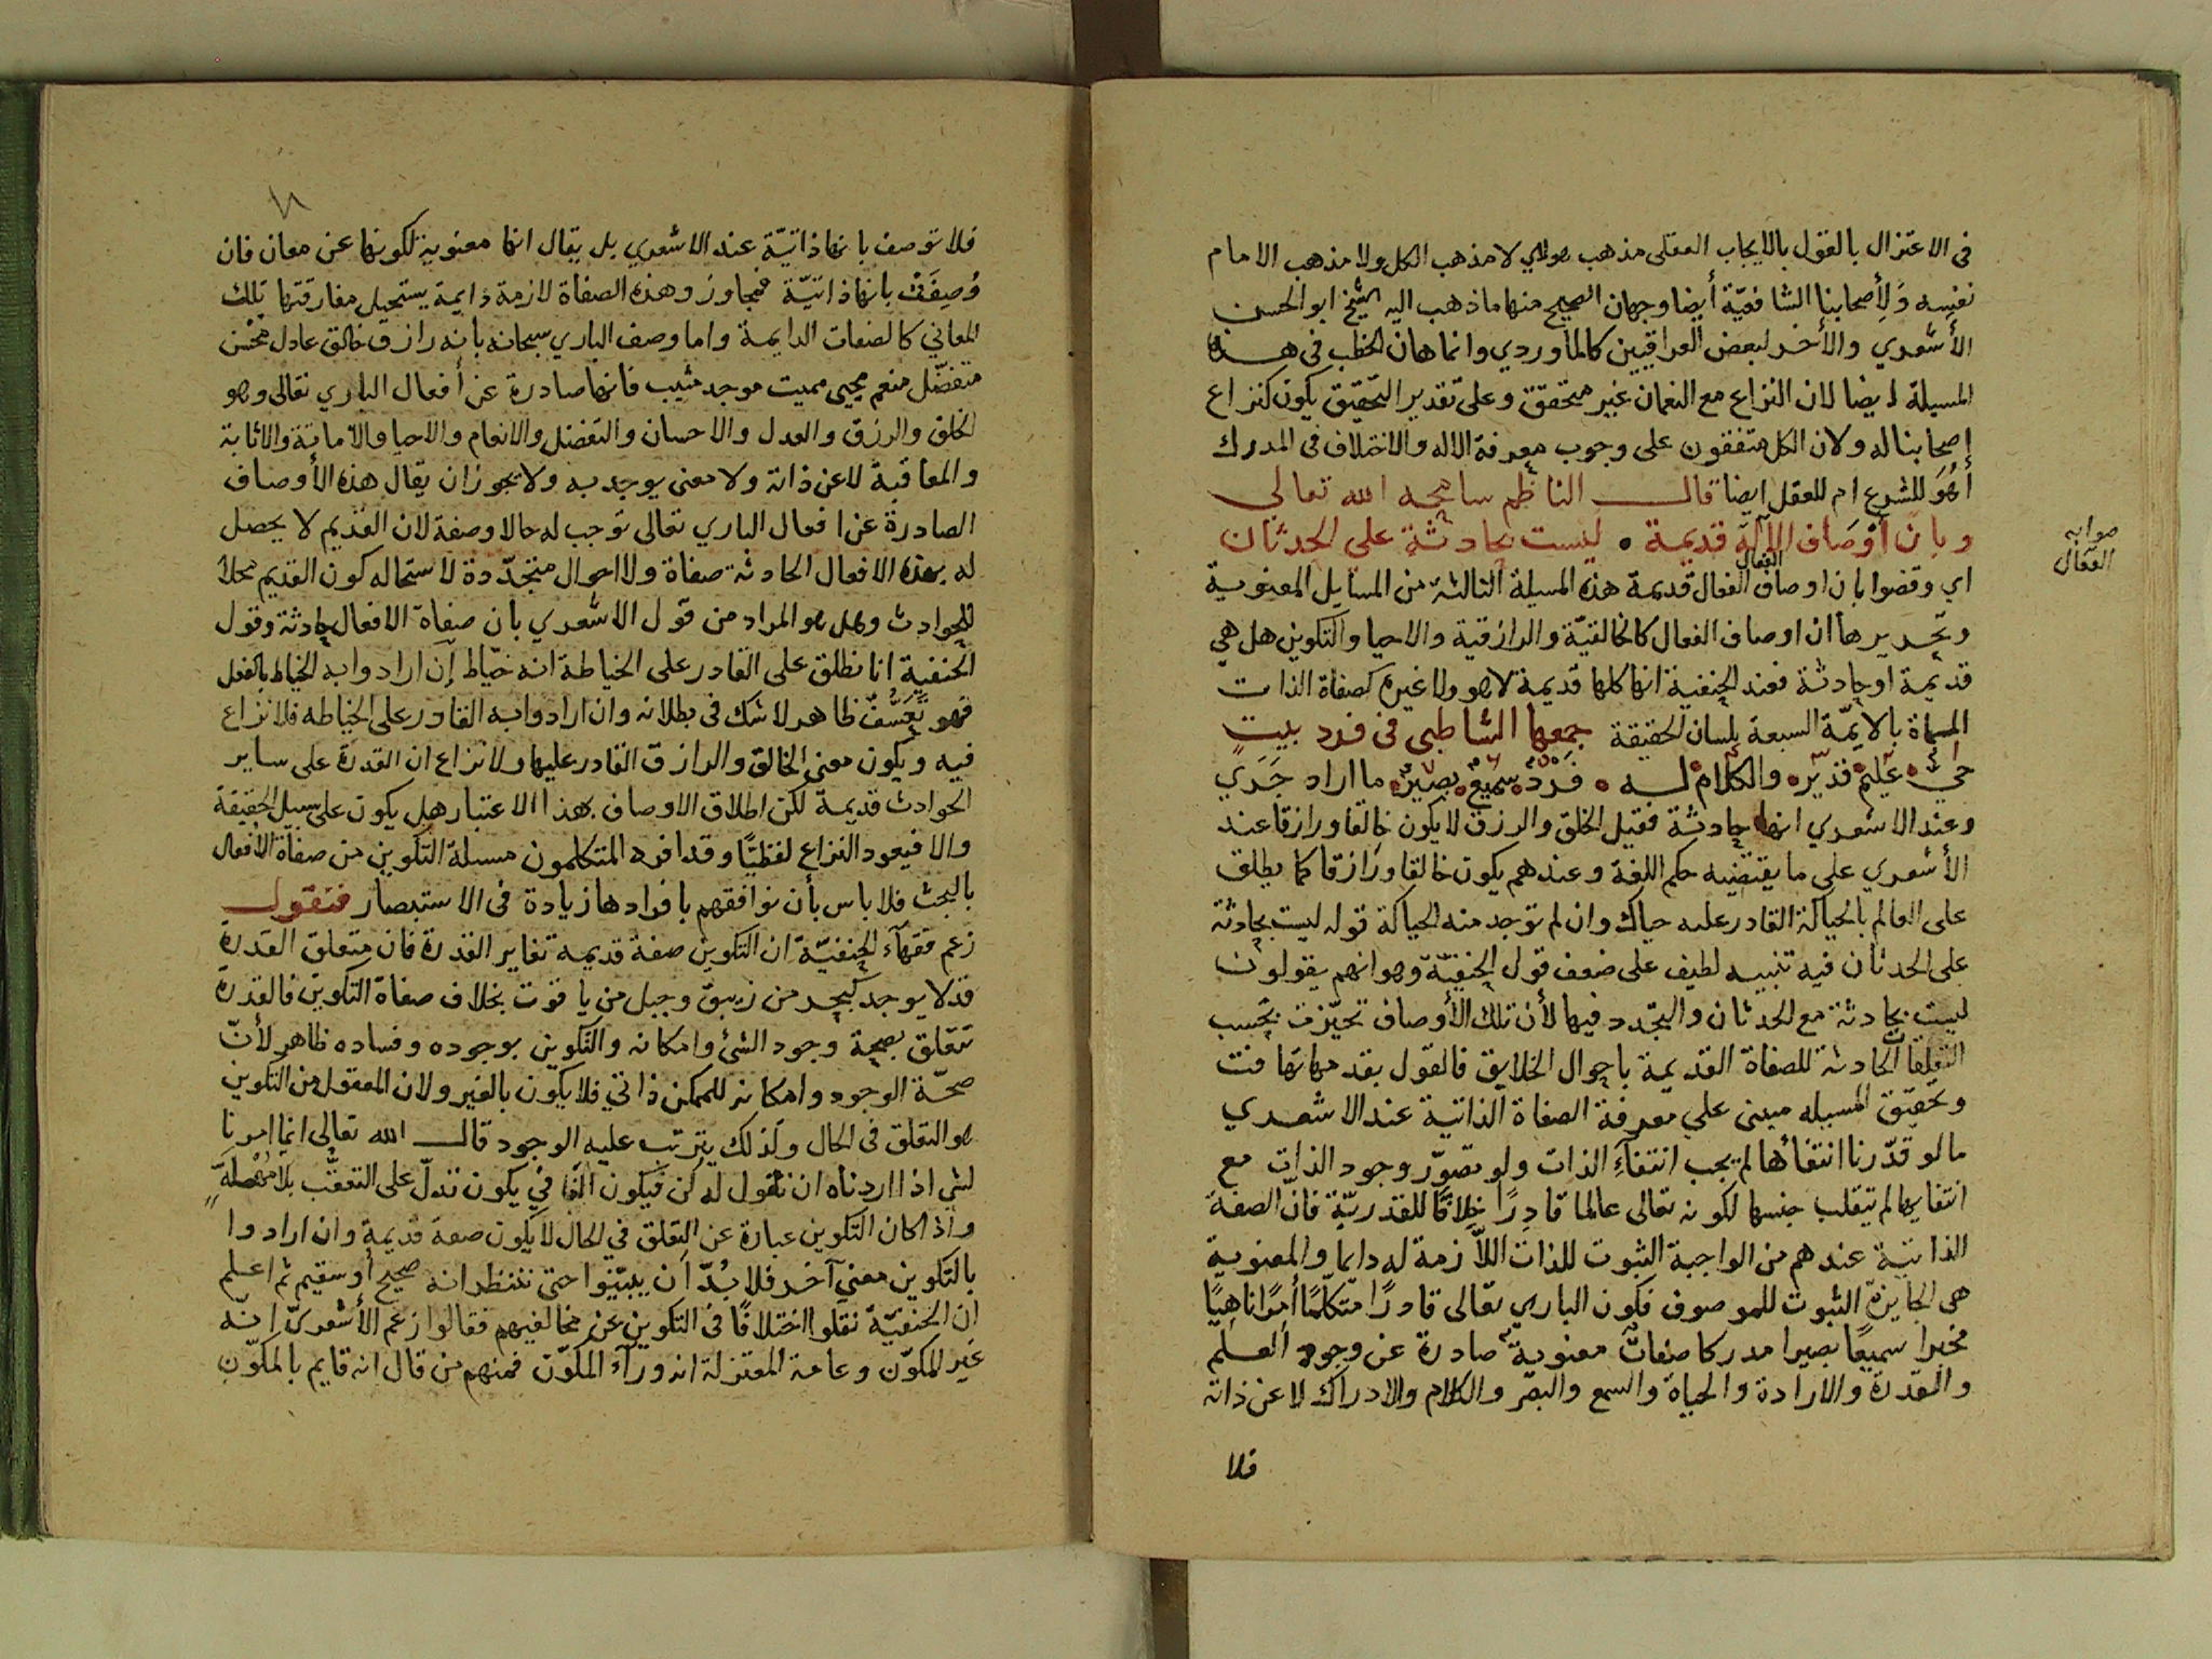 في الاعتزال بالقول بالايجاب العقلى مذهب هولاي لا مذهب الكل ولا مذهب الامام
نفسه وَلِأصحابنا الشافعيّة أيضا وجهان الصحيح منهما ماذهب اليه الشيخ ابو الحسن
الأشعري والأخر لبعض العراقيين كالماوردي وانما هان الخطب في هذه
المسيلة ايضا لان النزاع مع النعمان غير متحقق وعلى تقدير التحقيق يكون كنزاع
اصحابنا له ولان الكل متفقون على وجوب معرفة الاله والاختلاف في المدرك
أهُوَ للشرع ام للعقل ايضا قال الناظم سامحه الله تعالي
وبان أوْصَاف الآله قديمة • ليست بحادثة علي الحدثان
صوابه
الفعّال
الفعال
اي وقضوا بان اوصاف الفعال قديمة هذه المسيلة الثالثة من المسايل المعنوية
وتحريرها ان اوصاف الفعال كالخالقيّة والرازقية والاحيا والتكوين هل هي
قديمة اوحادثة فعند الحنفية انها كلها قديمة لا هو ولا غيره كصفاة الذات
المسماة بالايمّة السبعة بلسان الحقيقة جمعها الشاطبى في فرد بيتٍ
حيّ • عَليمٌ • قدير • والكلام لـه • فَردٌ • سميعٌ • بصيرٌ • ما اراد جَرَي
وعند الاشعري انها حادثة فقيل الخلق والرزق لا يكون خالقا ورازقا عند
الأشعري علي ما يقتضيه حكم اللغة وعندهم يكون خالقا ورازقا كما يطلق
على العالم بالحياكة القادر عليه حياك وان لم توجد منه الحياكة قوله ليست بحادثة
على الحدثان فيه تنبيه لطيف على ضعف قول الحنفيّة وهو انهم يقولون
ليست بحادثة مع الحدثان والتجدد فيها لأن تلك الأوصاف تحيّزت بحَسب
التعلقات الحادثة للصفاة القديمة باحوال الخلايق فالقول بقدمها تهافت
وتحقيق المسيله مبنى علي معرفة الصفاة الذاتية عند الاشعري
مالو قدّرنا انتفأها لم يجب انتفآء الذات ولو تصوّر وجود الذات مع
انتفايها لم تيقلب جنسها لكونه تعالى عالما قادرًا خلافًا للقدريّة فانّ الصفة
الذاتية عندهم من الواجبة الثبوت للذات اللآزمة له دايما والمعنوية
هى الجايزة الثبوت للموصوف فكون الباري تعالى قادرًا متكلّمًا أمرًا ناهيًا
مخبرا سميعًا بصيرا مدركا صفاتٌ معنوية صادرة عن وجود العلم
والقدرة والارادة والحياة والسمع والبصر والكلام والادراك لا عن ذاته
فلا
فلا توصف بانها ذاتيّة عند الاشعري بل يقال انها معنوية لكونها عن معان فان
وُصِفَتْ بانها ذاتيّة فمجاوز وهذه الصفاة لازمة دايمة يستحيل مفارقتها تلك
المعاني كالصفات الدايمة واما وصف الباري سبحانه بانه رازق خالق عادل محسن
متفضّل منعم محيى مميت موجد مثيب فانها صادرة عن أفعال الباري تعالى وهو
الخلق والرزق والعدل والاحسان والتفضل والانعام والاحيا والاماتة والاثابة
والمعاقبة لا عن ذاته ولا معنى يوجد به ولا يجوز ان يقال هذه الأوصاف
الصادرة عن افعال الباري تعالى توجب له حالا وصفة لان القديم لا يحصل
له بهذه الافعال الحادثة صفاة ولا احوال متجدّدة لاستحاله كون القديم محلاً
للحوادث وهل هو المراد من قول الاشعري بان صفاة الافعال حادثة وقول
الحنفية انا نطلق على القادر على الخياطة انه خيّاط إن ارادوا به الخياط بالفعل
فهو تعَسُّفٌ ظاهر لاشك في بطلانه وان ارادوا به القادر على الخياطه فلا نزاع
فيه ويكون معنى الخالق والرازق القادر عليها ولا نزاع ان القدرة على ساير
الحوادث قديمة لكن اطلاق الاوصاف بهذا الاعتبار هل يكون على سبيل الحقيقة
والا فيعود النزاع لفظيًّا وقد افرد المتكلمون مسيلة التكوين من صفاة الافعال
بالبحث فلا باس بأن نوافقهم بافرادها زيادة في الاستبصار فنقول
زعم فقهآء الحنفيّة ان التكوين صفة قديمة تغاير القدرة فان متعلق القدرة
قد لا يوجد كبحر من زيبق وجبل من ياقوت بخلاف صفاة التكوين فالقدرة
تتعلق بصحة وجود الشئ وامكانه والتكوين بوجوده وفساده ظاهر لأنّ
صحّة الوجود وامكانه للممكن ذاتي فلا يكون بالغير ولان المعقول من التكوين
هو التعلق في الحال وَلذلك يترتب عليه الوجود قال الله تعالى انما امرنا
لشي اذا اردناه ان نقول له كن فيكون الفا في يكون تدلّ على التعقّب بلا مُهْلَةٍ
واذا كان التكوين عبارة عن التعلق في الحال لا يكون صفة قديمة وان ارادوا
بالتكوين معني آخر فلا بُدّ ان يبيّنوا حتى ننظر انه صحيح أو سقيم ثم اعلم
ان الحنفيّة نقلوا اختلافًا في التكوين عن مخالفيهم فقالوا زعم الأشعريّ انّه
غير المكوّن وعامة المعتزلة انه ورآء المكوّن فمنهم من قال انه قايم بالمكوّن